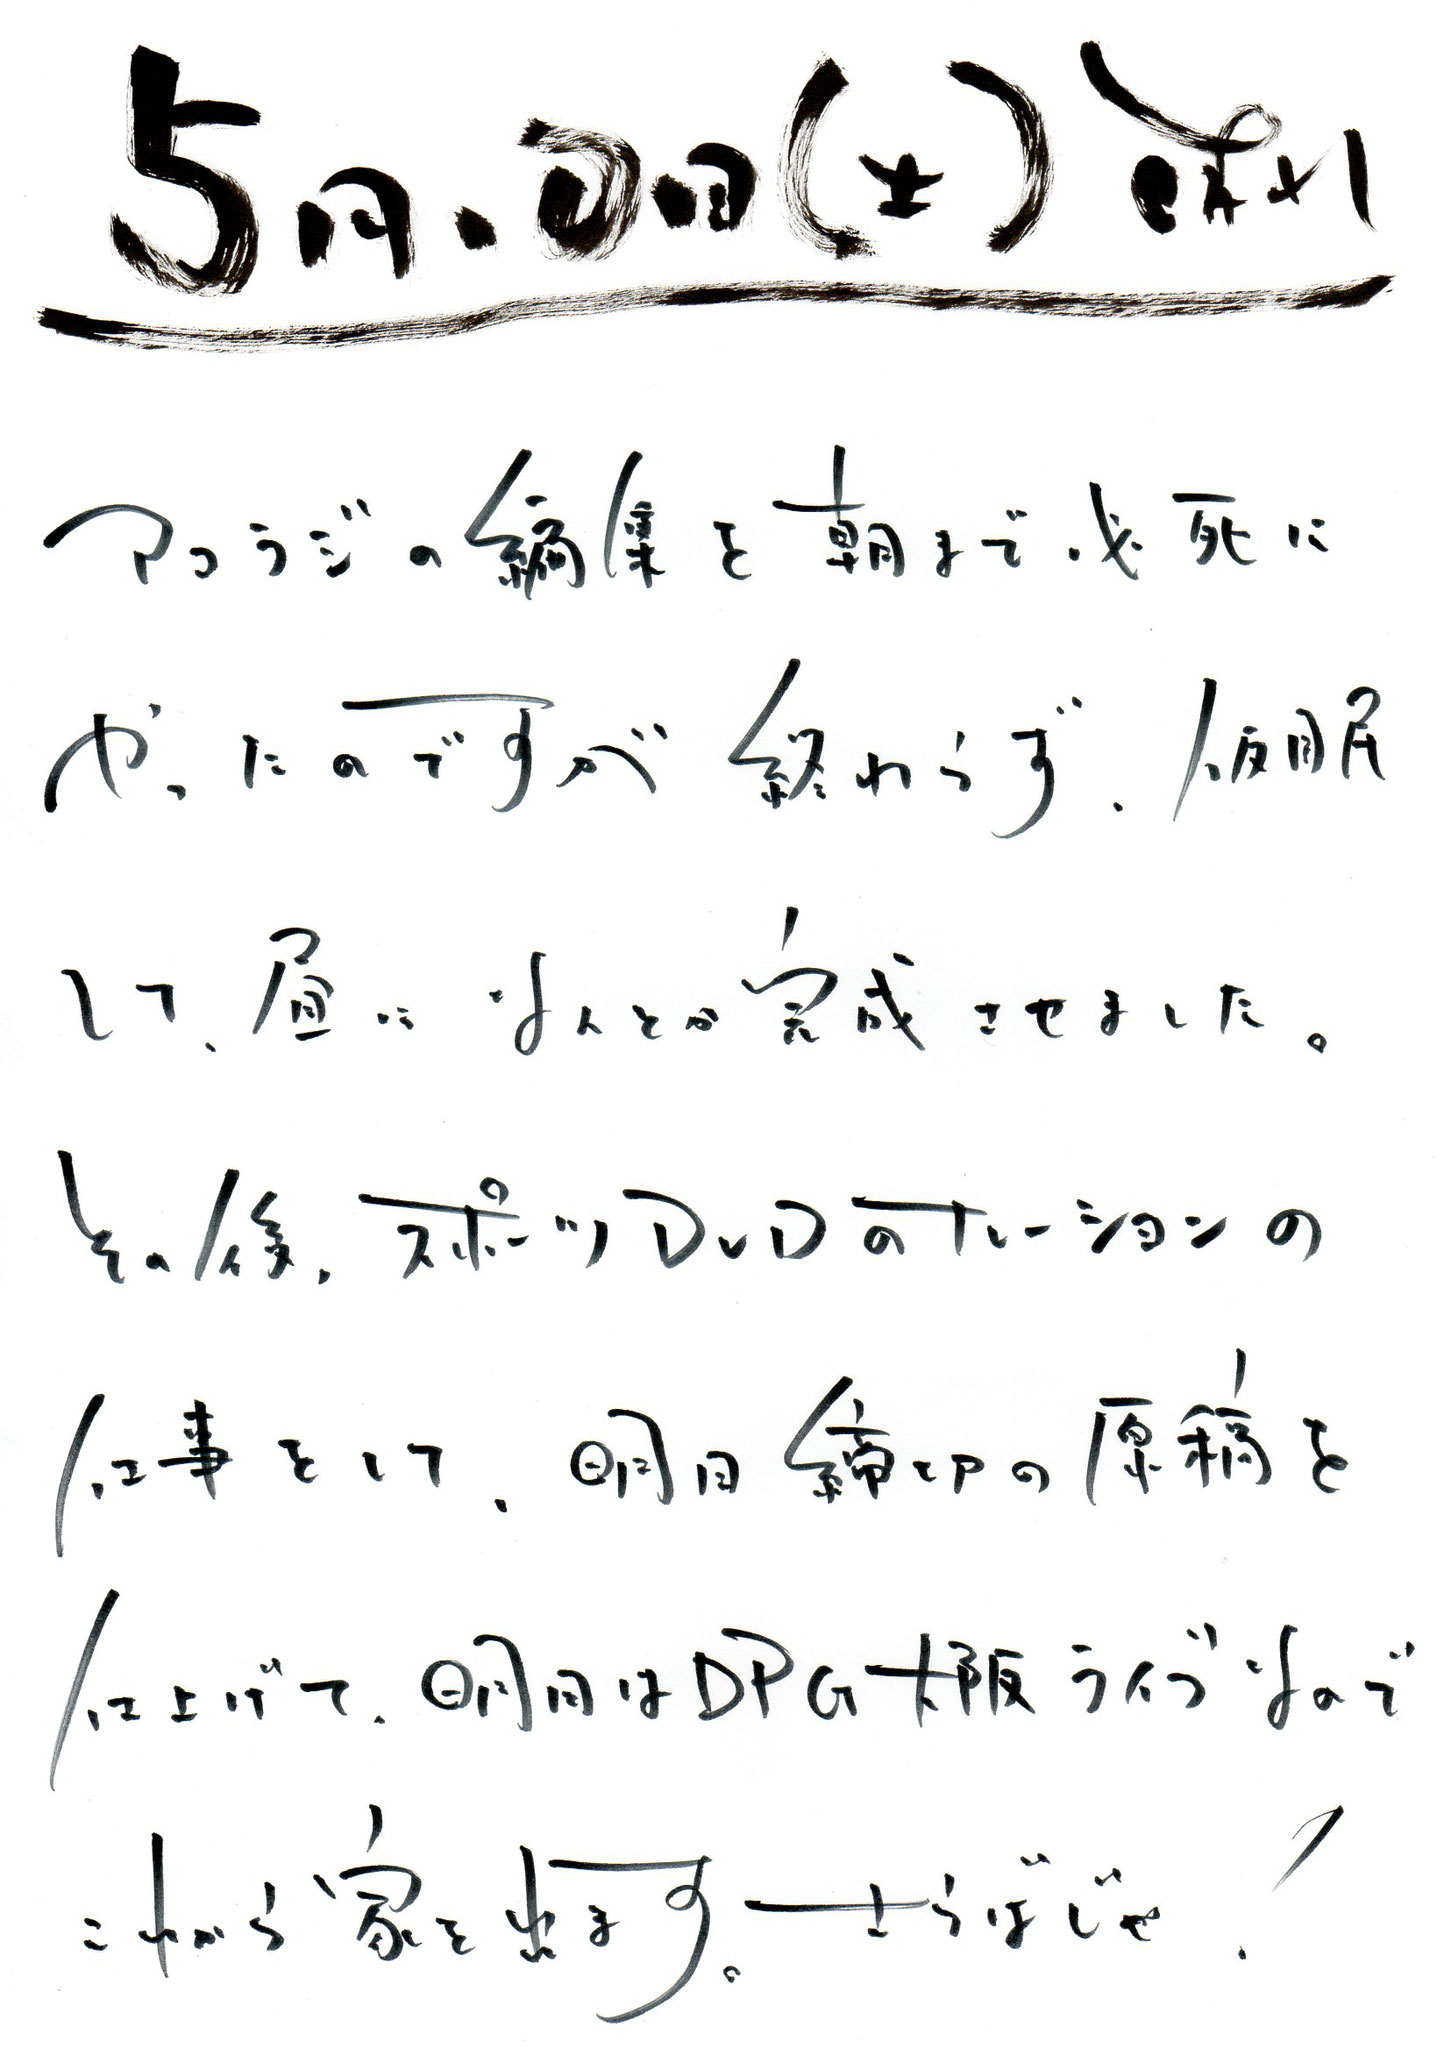 5月10日(土) 晴れ
アコラジの編集を朝まで必死に
やったのですが終わらず、仮眠
して、昼になんとか完成させました。
その後、スポーツDVDのナレーションの
仕事をして、明日締切の原稿を
仕上げて、明日はDPG大阪ライブなので
これから家を出ます。さらばじゃ!